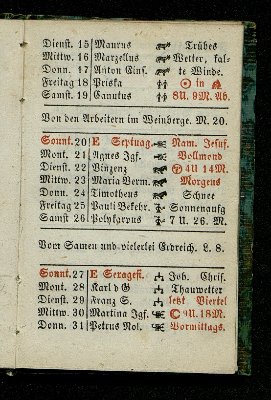 Dienst. 15 Maurus Trübes
Mittw. 16 Marzellus Wetter, kal-
Donn. 17 Anton Eins. te Winde.
Freitag 18 Priska ☉ in
Samst. 19 Canutus 8U. 9M. Ab.
Von den Arbeitern im Weinberge. M. 20.
Sonnt. 20 E Septuag. Nam. Jesuf.
Mont. 21 Agnes Jgf. Vollmond
Dienst. 22 Vinzenz 4U 14M.
Mittw. 23 Maria Verm. Morgens
Donn. 24 Timotheus Schnee
Freitag 25 Pauli Bekehr. Sonnenaufg
Samst 26 Polykarpus 7 U. 26. M.
Vom Samen und vielerlei Erdreich. L. 8.
Sonnt. 27 E Seragest. Joh. Chris.
Mont. 28 Karl d G Thauwetter
Dienst. 29 Franz S. letzt Viertel
Mittw. 30 Martina Jgf. 9U. 18M.
Donn. 31 Petrus Nol. Vormittags.